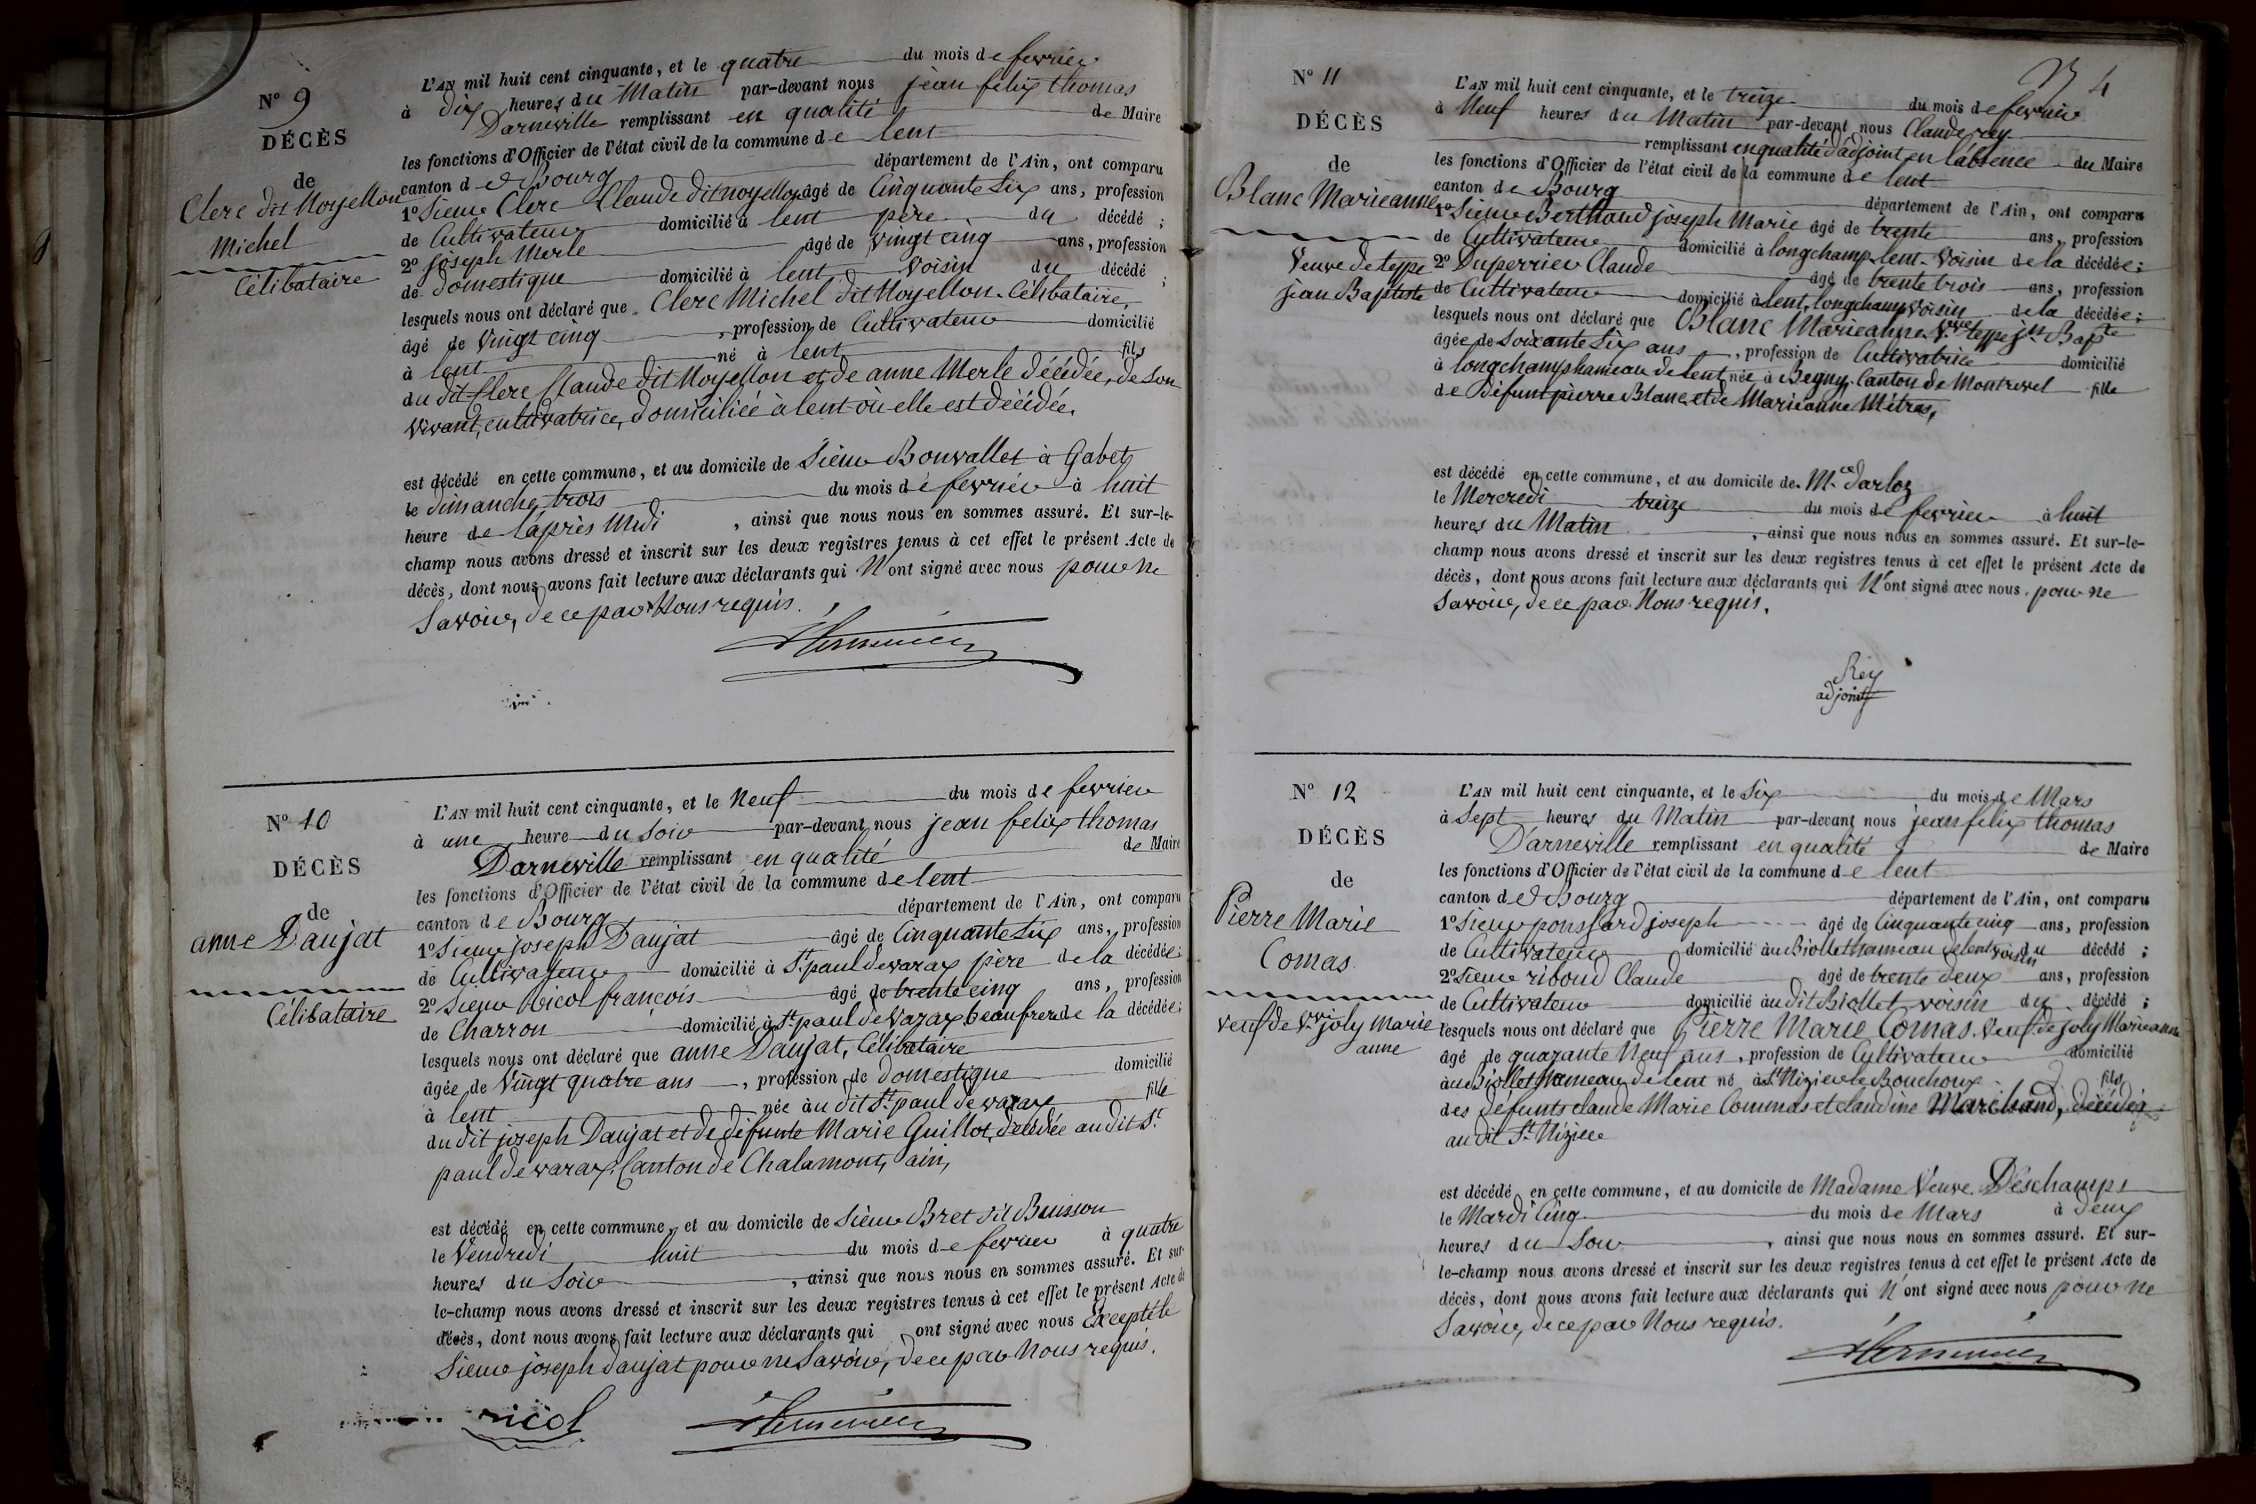 N° 9
DÉCÈS
de
Clerc dit Moyellon
Michel
Célibataire
L'AN mil huit cent cinquante, et le quatre du mois de fevrier
à dix heures du Matin par-devant nous jean felix thomas
Darneville remplissant en qualité de Maire
les fonctions d'Officier de l'état civil de la commune de lent
canton de Bourg département de l'Ain, ont comparu
1° Sieur Clerc Claude dit moyellon âgé de Cinquante Six ans, profession
de Cultivateur domicilié à lent père du décédé ;
2° joseph Merle âgé de vingt cinq ans, profession
de domestique domicilié à lent voisin du décédé ;
lesquels nous ont déclaré que Clerc Michel dit Moyellon Célibataire,
âgé de vingt cinq , profession de Cultivateur domicilié
à lent né à lent fils
du dit Clerc Claude dit Moyellon et de anne Merle décédée, de son
vivant, cultivatrice, domiciliée à lent où elle est décédée.
est décédé en cette commune, et au domicile de Sieur Bonvallet à Gabet
le dimanche trois du mois de fevrier à huit
heure de l'après Midi , ainsi que nous nous en sommes assuré. Et sur-le-
champ nous avons dressé et inscrit sur les deux registres tenus à cet effet le présent Acte de
décès, dont nous avons fait lecture aux déclarants qui N'ont signé avec nous pour ne
Savoir, de ce par Nous requis.
N° 10
DÉCÈS
de
anne Daujat
Célibataire
L'AN mil huit cent cinquante, et le Neuf du mois de fevrier
à une heure du Soir par-devant nous jean felix thomas
Darneville remplissant en qualité de Maire
les fonctions d'Officier de l'état civil de la commune de lent
canton de Bourg département de l'Ain, ont comparu
1° Sieur joseph Daujat âgé de Cinquante Six ans, profession
de Cultivateur domicilié à St paul de varax père de la décédée ;
2° Sieur Nicol françois âgé de trente cinq ans, profession
de Charron domicilié à St paul de Varax, beaufrere de la décédée ;
lesquels nous ont déclaré que anne Daujat, Célibataire
âgée de Vingt quatre ans , profession de domestique domicilié
à lent née au dit St paul de varax fille
du dit joseph Daujat et de défunte Marie Guillot, décédée au dit St
paul de varax, Canton de Chalamont, ain,
est décédé en cette commune, et au domicile de Sieur Bret dit Buisson
le Vendredi huit du mois de fevrier à quatre
heures du Soir , ainsi que nous nous en sommes assuré. Et sur-
le-champ nous avons dressé et inscrit sur les deux registres tenus à cet effet le présent Acte de
décès, dont nous avons fait lecture aux déclarants qui ont signé avec nous Excepté le
Sieur joseph daujat pour ne Savoir, de ce par Nous requis.
nicol
4
N° 11
DÉCÈS
de
Blanc Marieanne
Veuve de teppe
jean Baptiste
L'AN mil huit cent cinquante, et le treize du mois de fevrier
à Neuf heures du Matin par-devant nous Claude rey
remplissant en qualité d'adjoint en l'absence du Maire
les fonctions d'Officier de l'état civil de la commune de lent
canton de Bourg département de l'Ain, ont comparu
1° Sieur Berthaud joseph Marie âgé de trente ans, profession
de Cultivateur domicilié à longchamp, lent. Voisin de la décédée ;
2° Duperrier Claude âgé de trente trois ans, profession
de Cultivateur domicilié à lent, longchamp voisin de la décédée ;
lesquels nous ont déclaré que Blanc Marieanne Vve teppe jn Bapte
âgée de Soixante Six ans , profession de Cultivatrice domicilié
à longchamp hameau de lent née à Begny, Canton de Montrevel fille
de défunt pierre Blanc et de Marieanne Métras,
est décédé en cette commune, et au domicile de Mce darloz
le Mercredi treize du mois de fevrier à huit
heures du Matin , ainsi que nous nous en sommes assuré. Et sur-le-
champ nous avons dressé et inscrit sur les deux registres tenus à cet effet le présent Acte de
décès, dont nous avons fait lecture aux déclarants qui N'ont signé avec nous pour ne
Savoir, de ce par Nous requis.
Rey
adjoint
N° 12
DÉCÈS
de
Pierre Marie
Comas
veuf de joly Marie
anne
L'AN mil huit cent cinquante, et le Six du mois de Mars
à Sept heures du Matin par-devant nous jean felix thomas
D'arneville remplissant en qualité de Maire
les fonctions d'Officier de l'état civil de la commune de lent
canton de Bourg département de l'Ain, ont comparu
1° Sieur ponsard joseph âgé de Cinquante cinq ans, profession
de Cultivateur domicilié au Biollet hameau de lent voisin du décédé ;
2° Sieur riboud Claude âgé de trente deux ans, profession
de Cultivateur domicilié au dit Biollet voisin du décédé ;
lesquels nous ont déclaré que Pierre Marie Comas, veuf de joly Marieanne
âgé de quarante Neuf ans , profession de Cultivateur domicilié
au Biollet hameau de lent né à St Nizier le Bouchoux fils
des défunts claude Marie Commas et claudine Marchand, décédés
au dit St Nizier
est décédé en cette commune, et au domicile de Madame Veuve Deschamps
le Mardi Cinq du mois de Mars à deux
heures du Soir , ainsi que nous nous en sommes assuré. Et sur-
le-champ nous avons dressé et inscrit sur les deux registres tenus à cet effet le présent Acte de
décès, dont nous avons fait lecture aux déclarants qui N'ont signé avec nous pour ne
Savoir, de ce par Nous requis.